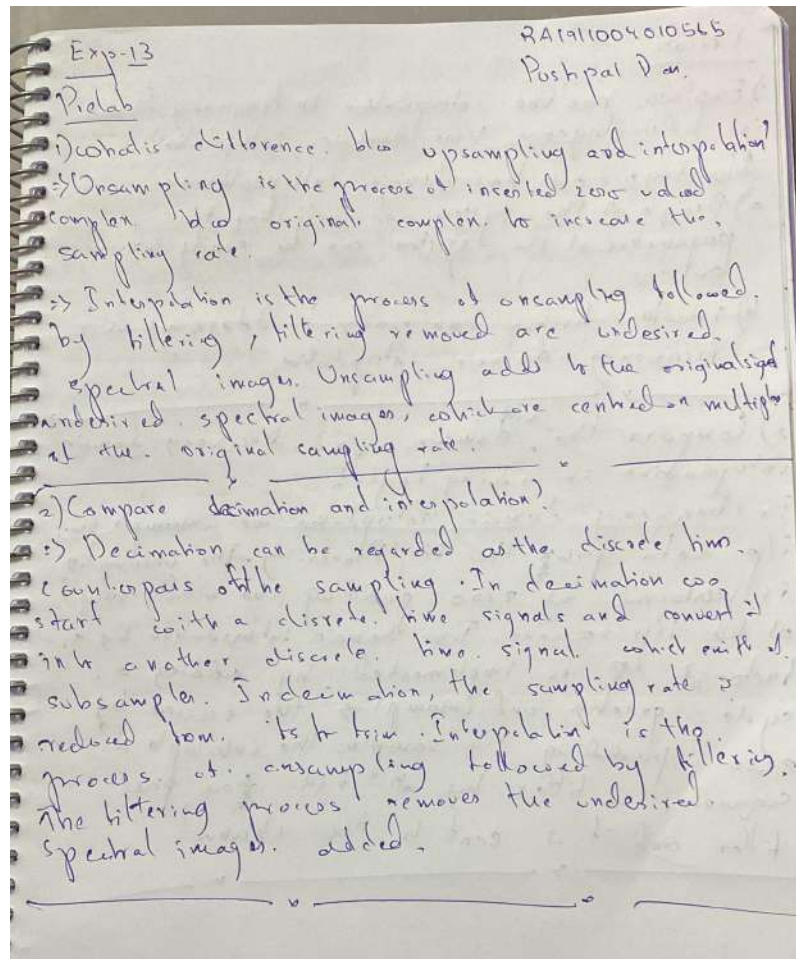 RA1911004010565
Exp-13
Pushpal Das.
Prelab
1) what is difference b/w upsampling and interpolation?
=> Upsampling is the process of inserted zero valued
complex b/w original complex to increase the
sampling rate.
=> Interpolation is the process of upsampling followed.
by filtering, filtering removed are undesired.
spectral images. Upsampling adds to the original signal
undesired spectral images, which are centred on multiples
of the original sampling rate.
2) Compare decimation and interpolation?
=> Decimation can be regarded as the discrete time.
counterpars of the sampling. In decimation we
start with a disrete time signals and convert it
into another discrete time signal which
subsamples. In decimation, the sampling rate is
reduced from. Fs to Interpolation is the
process of upsampling followed by filtering.
The filtering process removes the undesired
spectral images. added.